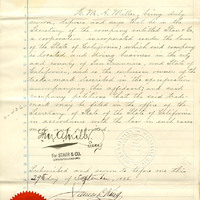 H. M. A. Miller, being duly
sworn, deposes and says that he is the
Secretary of the company entitled Starr & Co.
a corporation incorporated under the laws
of the State of California; which said company
is located and doing business in the city
and county of San Francisco, and State of
California, and is the exclusive owner of the
trade mark described in the
accompanying this affidavit; and said
company being desirous that the said trade
mark may be filed in the office of the
Secretary of State of the State of California
in accordance with the law in such cases
made and provided.
For STARR & CO.
Subscribed and sworn to before me this
29th day of September, 188